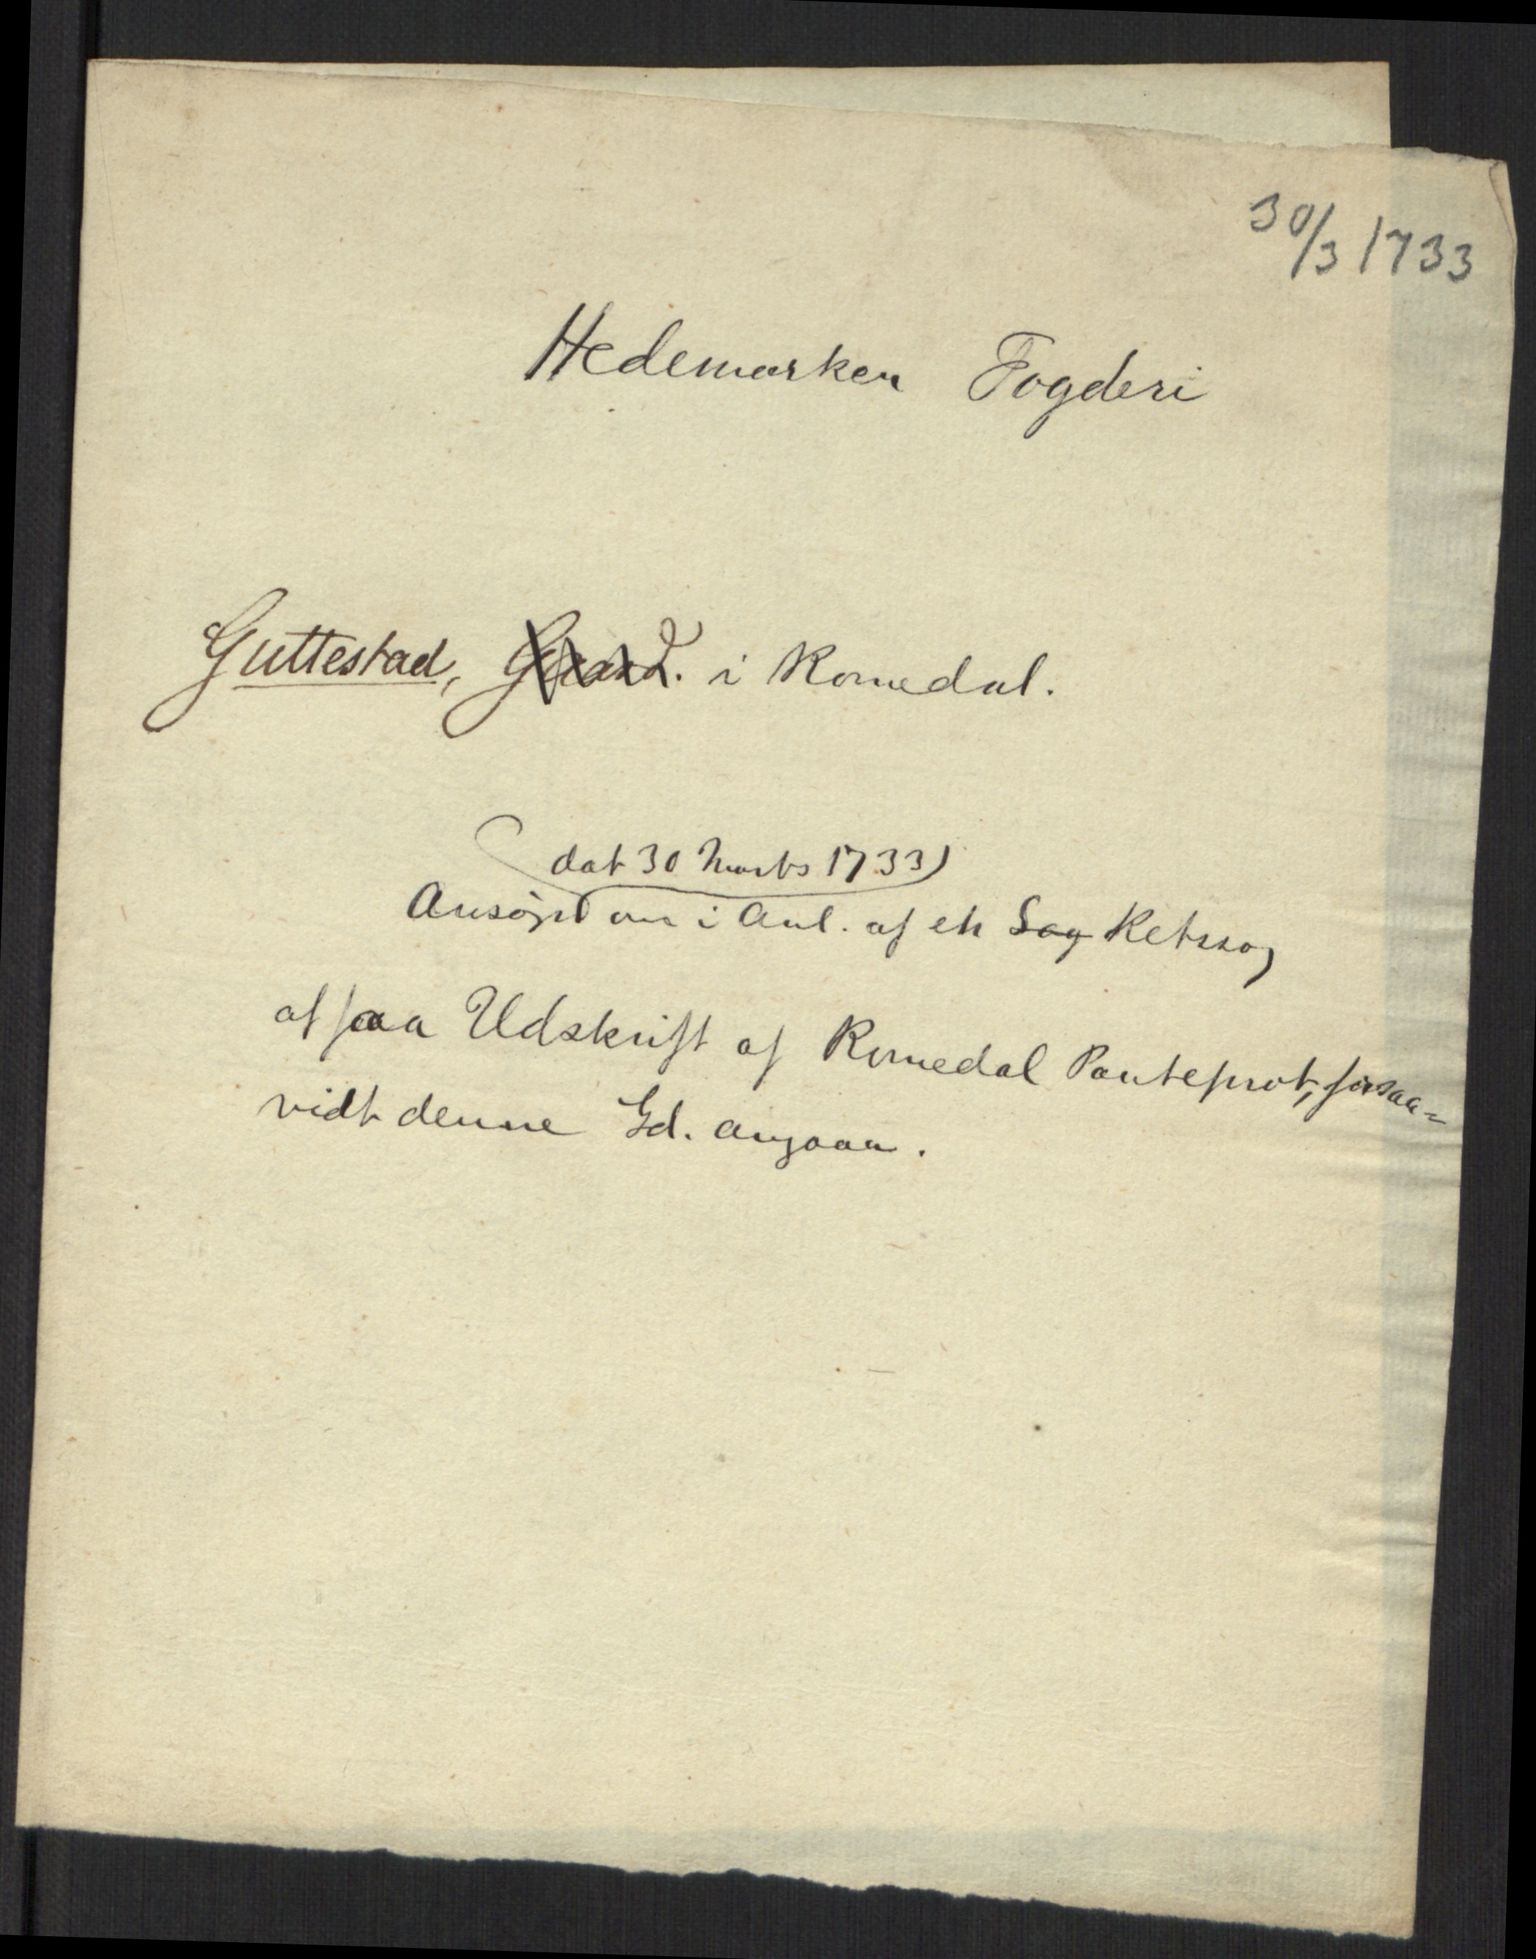 30/3 1733
Hedemarken Fogderi
Guttestad, Gaard. i Romedal.
(dat 30 Marts 1733)
Ansøgn om i Anl. af en Sag Retssag
at faa Udskrift af Romedal Panteprot, forsaa=
vidt denne Gd. angaar.